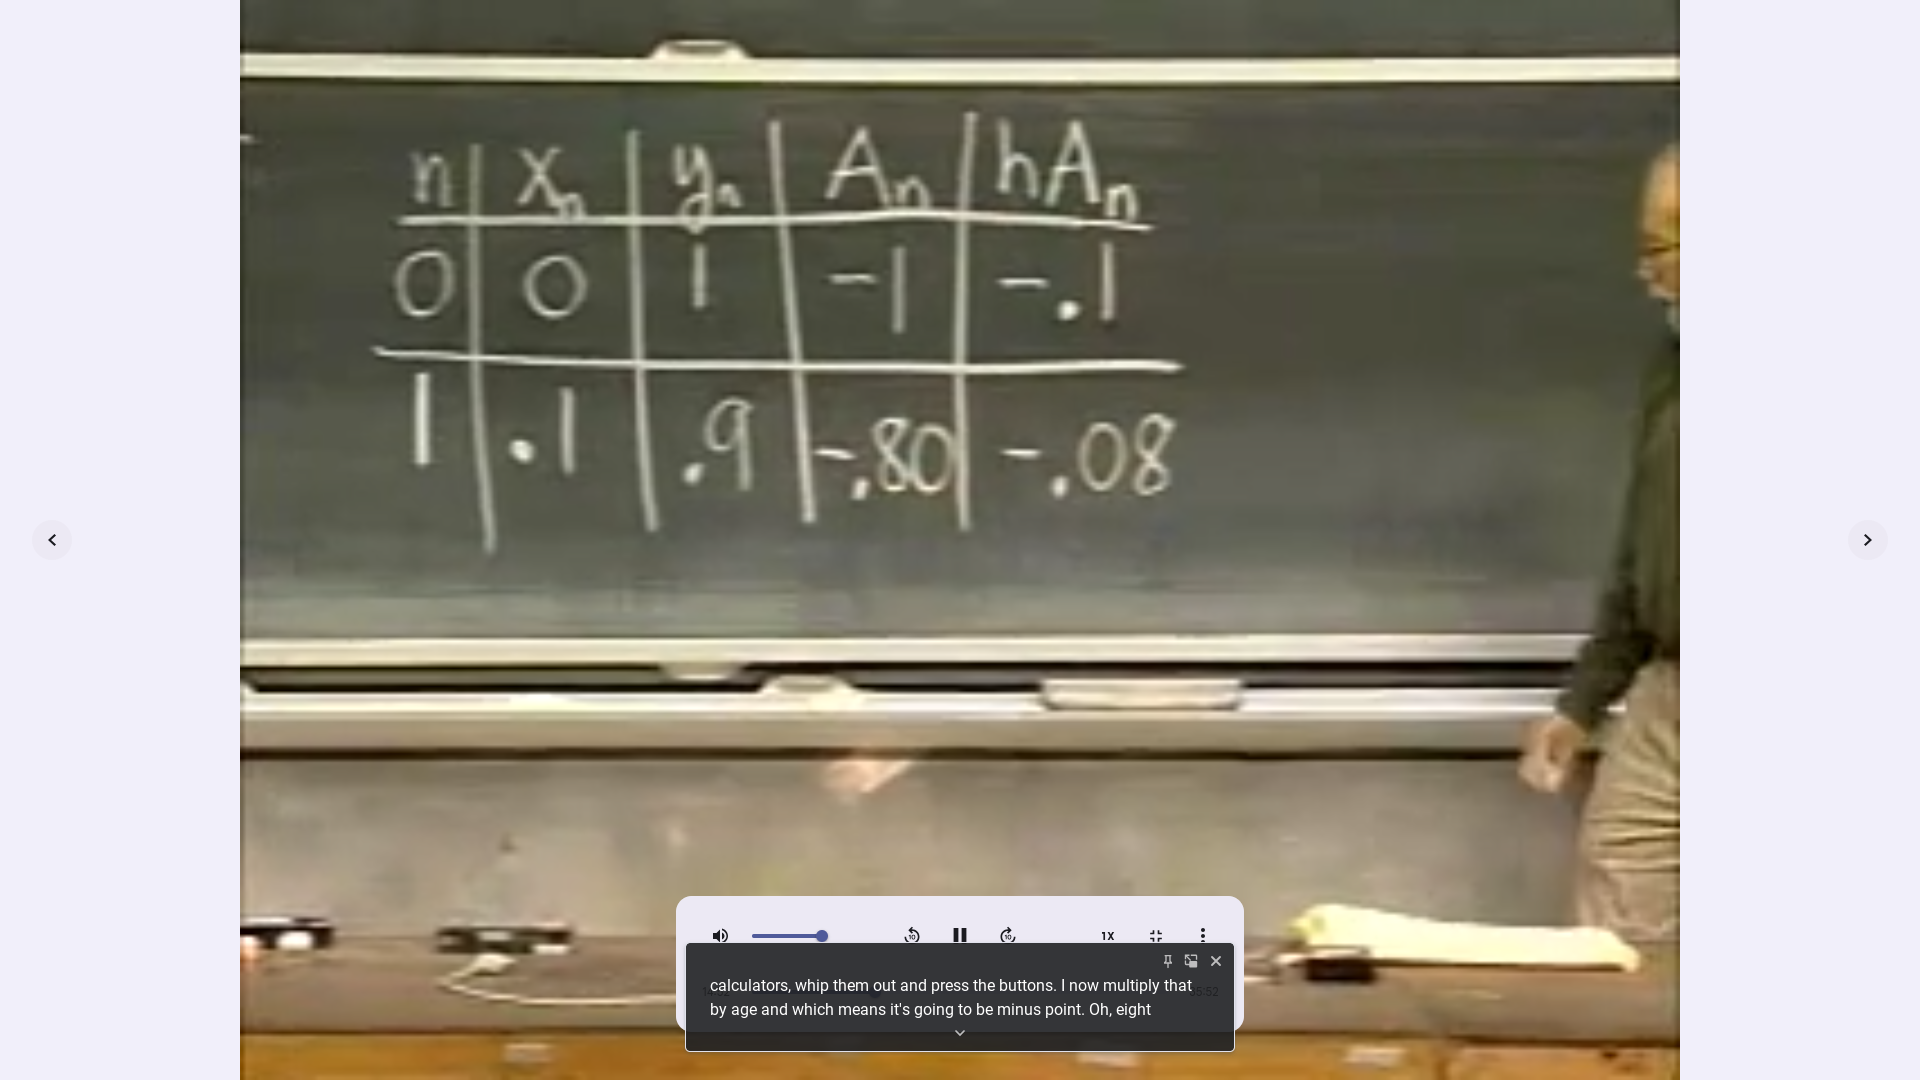 n xₙ yₙ Aₙ hAₙ
0 0 1 -1 -.1
1 .1 .9 -.80 -.08
10 10 1X
calculators, whip them out and press the buttons. I now multiply that
by age and which means it's going to be minus point. Oh, eight